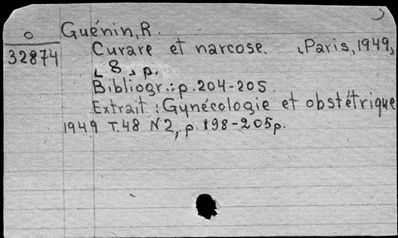 Guénin, R.
o
32874
Curare et narcose. Paris, 1949,
8, p.
Bibliogr.: p. 204-205.
Extrait: Gynécologie et obstétrique
1949 T.48 N2, p. 198-205p.